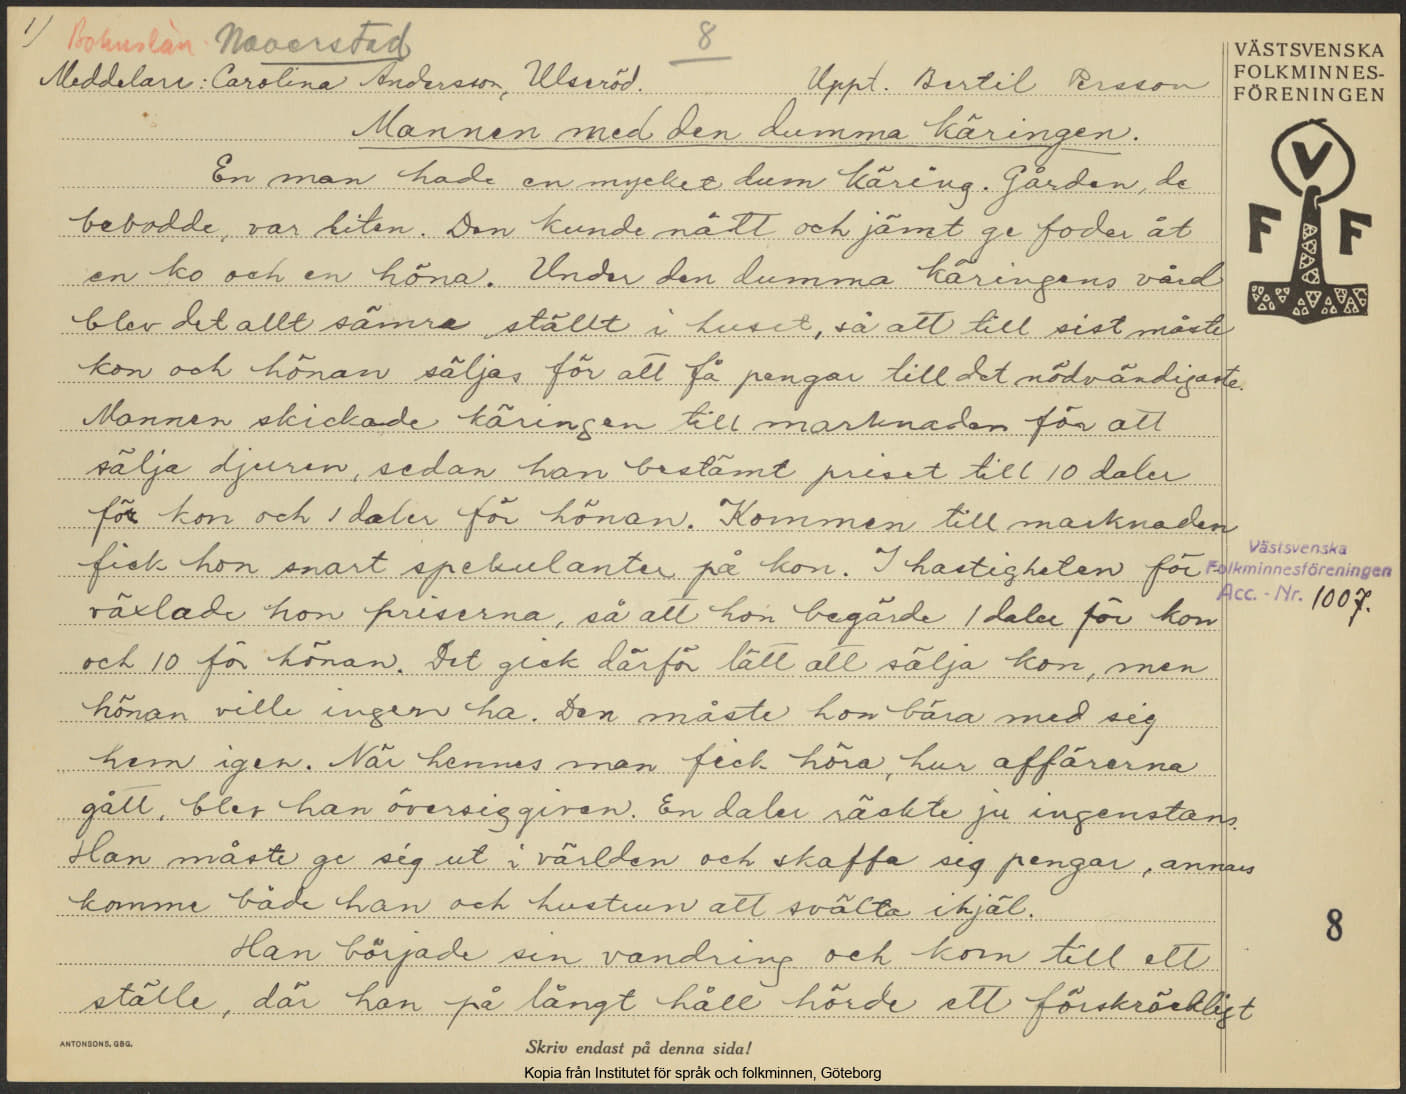 1)
Bohuslän Naverstad
8
Meddelare: Carolina Andersson, Ulseröd. Uppt. Bertil Persson
Mannen med den dumma käringen.
En man hade en mycket dum käring. Gården, de
bebodde, var liten. Den kunde nått och jämt ge foder åt
en ko och en höna. Under den dumma käringens vård
blev det allt sämre ställt i huset, så att till sist måste
kon och hönan säljas för att få pengar till det nödvändigaste.
Mannen skickade käringen till marknaden för att
sälja djuren, sedan han bestämt priset till 10 daler
för kon och 1 daler för hönan. Kommen till marknaden
fick hon snart spekulanter på kon. I hastigheten för-
växlade hon priserna, så att hon begärde 1 daler för kon
och 10 för hönan. Det gick därför lätt att sälja kon, men
hönan ville ingen ha. Den måste hon bära med sig
hem igen. När hennes man fick höra, hur affärerna
gått, blev han översiggiven. En daler räckte ju ingenstans.
Han måste ge sig ut i världen och skaffa sig pengar, annars
komme både han och hustrun att svälta ihjäl.
Han började sin vandring och kom till ett
ställe, där han på långt håll hörde ett förskräckligt
VÄSTSVENSKA
FOLKMINNES-
FÖRENINGEN
V
F F
Västsvenska
Folkminnesföreningen
Acc. - Nr. 1007.
8
ANTONSONS, GBG.
Skriv endast på denna sida!
Kopia från Institutet för språk och folkminnen, Göteborg